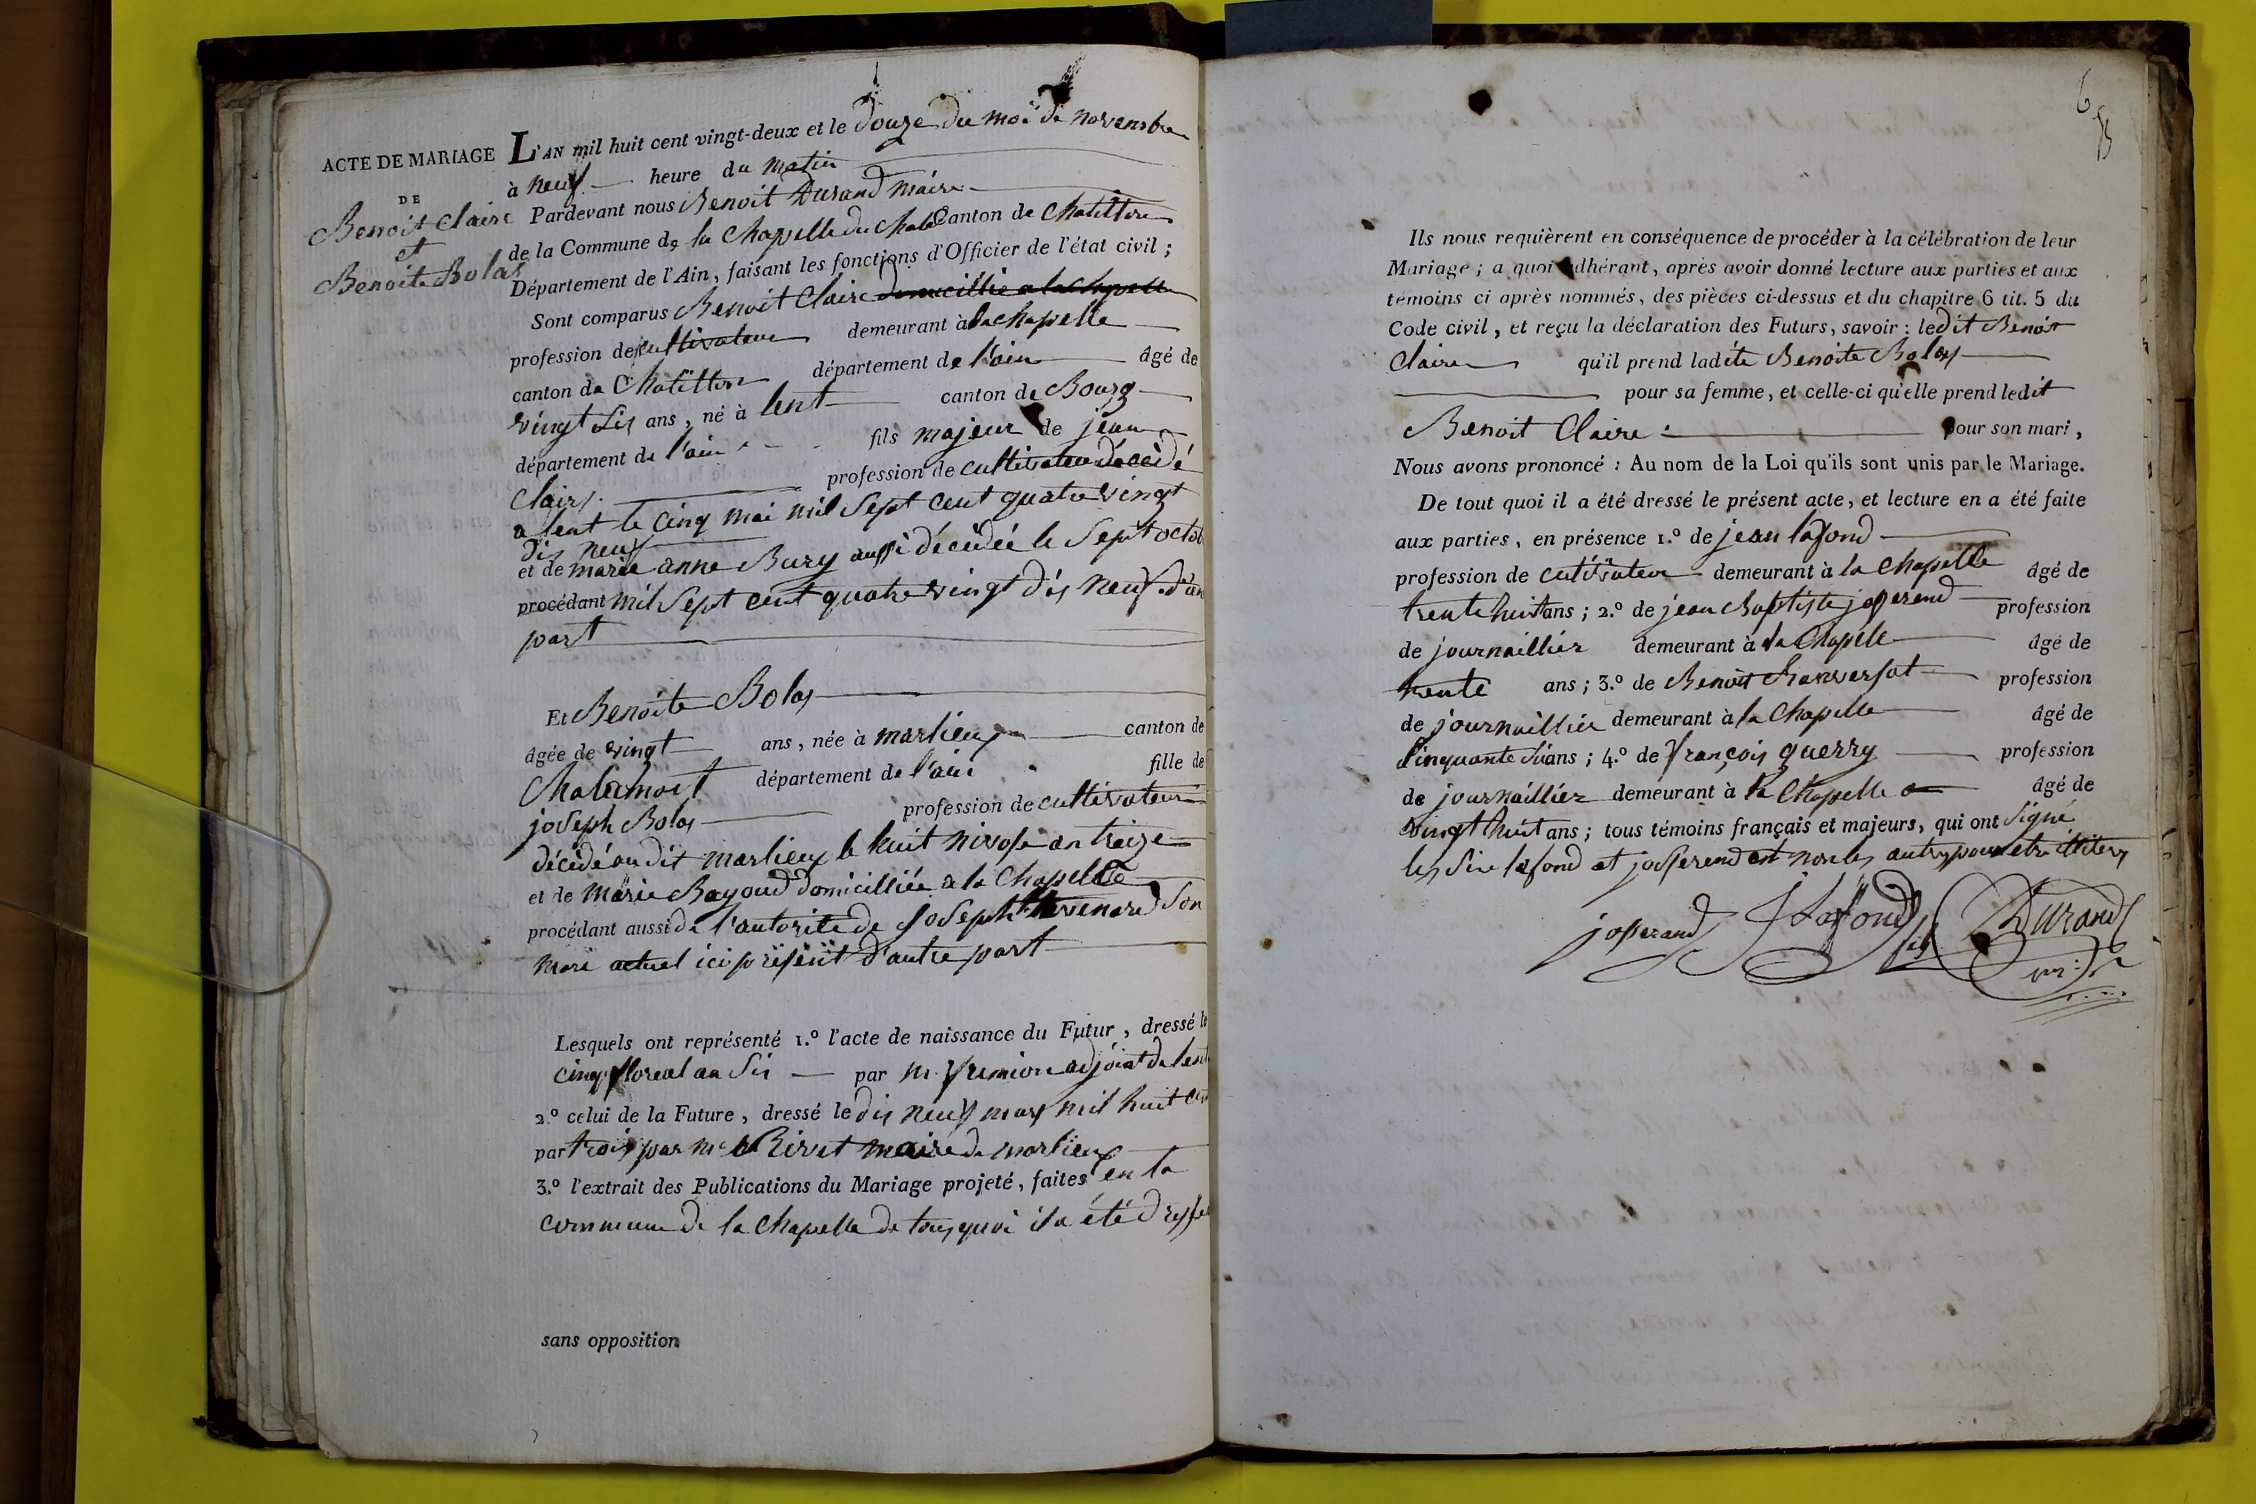 ACTE DE MARIAGE
DE
Benoit Claire
et
Benoite Bolas
L'AN mil huit cent vingt-deux et le douze du moi de novembre
à neuf heure du matin
Pardevant nous Benoit Durand maire
de la Commune de la Chapelle du Chat Canton de Chatillon
Département de l'Ain, faisant les fonctions d'Officier de l'état civil ;
Sont comparus Benoit Claire domicillié a la Chapelle
profession de cultivateur demeurant à la chapelle
canton de Chatillon département de l'ain âgé de
vingt six ans, né à lent canton de Bourg
département de l'ain fils majeur de jean
Claire profession de cultivateur décédé
a lent le cinq mai mil sept cent quatre vingt
dix neuf
et de marie anne Bury aussi décédée le sept octob
procédant mil sept cent quatre vingt dix neuf d'un
part
Et Benoite Bolas
âgée de vingt ans, née à marlieux canton de
Chalamont département de l'ain fille de
joseph Bolas profession de cultivateur
décédé audit marlieux le huit nivose an treize
et de marie Bayoud domicilliée a la Chapelle
procédant aussi de l'autorité de joseph son
mari actuel ici présent d'autre part
Lesquels ont représenté 1.º l'acte de naissance du Futur, dressé le
cinq floreal an six par m. adjoint de lent
2.º celui de la Future, dressé le dix neuf mars mil huit cent
par trois par mr Rivet maire de marlieux
3.º l'extrait des Publications du Mariage projeté, faites en la
commune de la Chapelle de tous quoi il a été dressé
sans opposition
6
Ils nous requièrent en conséquence de procéder à la célébration de leur
Mariage ; a quoi adhérant, après avoir donné lecture aux parties et aux
témoins ci après nommés, des pièces ci-dessus et du chapitre 6 tit. 5 du
Code civil, et reçu la déclaration des Futurs, savoir : ledit Benoit
Claire qu'il prend ladite Benoite Bolas
pour sa femme, et celle-ci qu'elle prend ledit
Benoit Claire pour son mari,
Nous avons prononcé : Au nom de la Loi qu'ils sont unis par le Mariage.
De tout quoi il a été dressé le présent acte, et lecture en a été faite
aux parties, en présence 1.º de jean lafond
profession de cultivateur demeurant à la Chapelle âgé de
trente huit ans ; 2.º de jean Baptiste josserand profession
de journaillier demeurant à la Chapelle âgé de
trente ans ; 3.º de Benoit profession
de journaillier demeurant à la Chapelle âgé de
cinquante six ans ; 4.º de françois guerry profession
de journaillier demeurant à la Chapelle âgé de
vingt huit ans ; tous témoins français et majeurs, qui ont signé
les sire lafond et josserand et non les autres pour etre illiteres
josserand J Lafond Durand